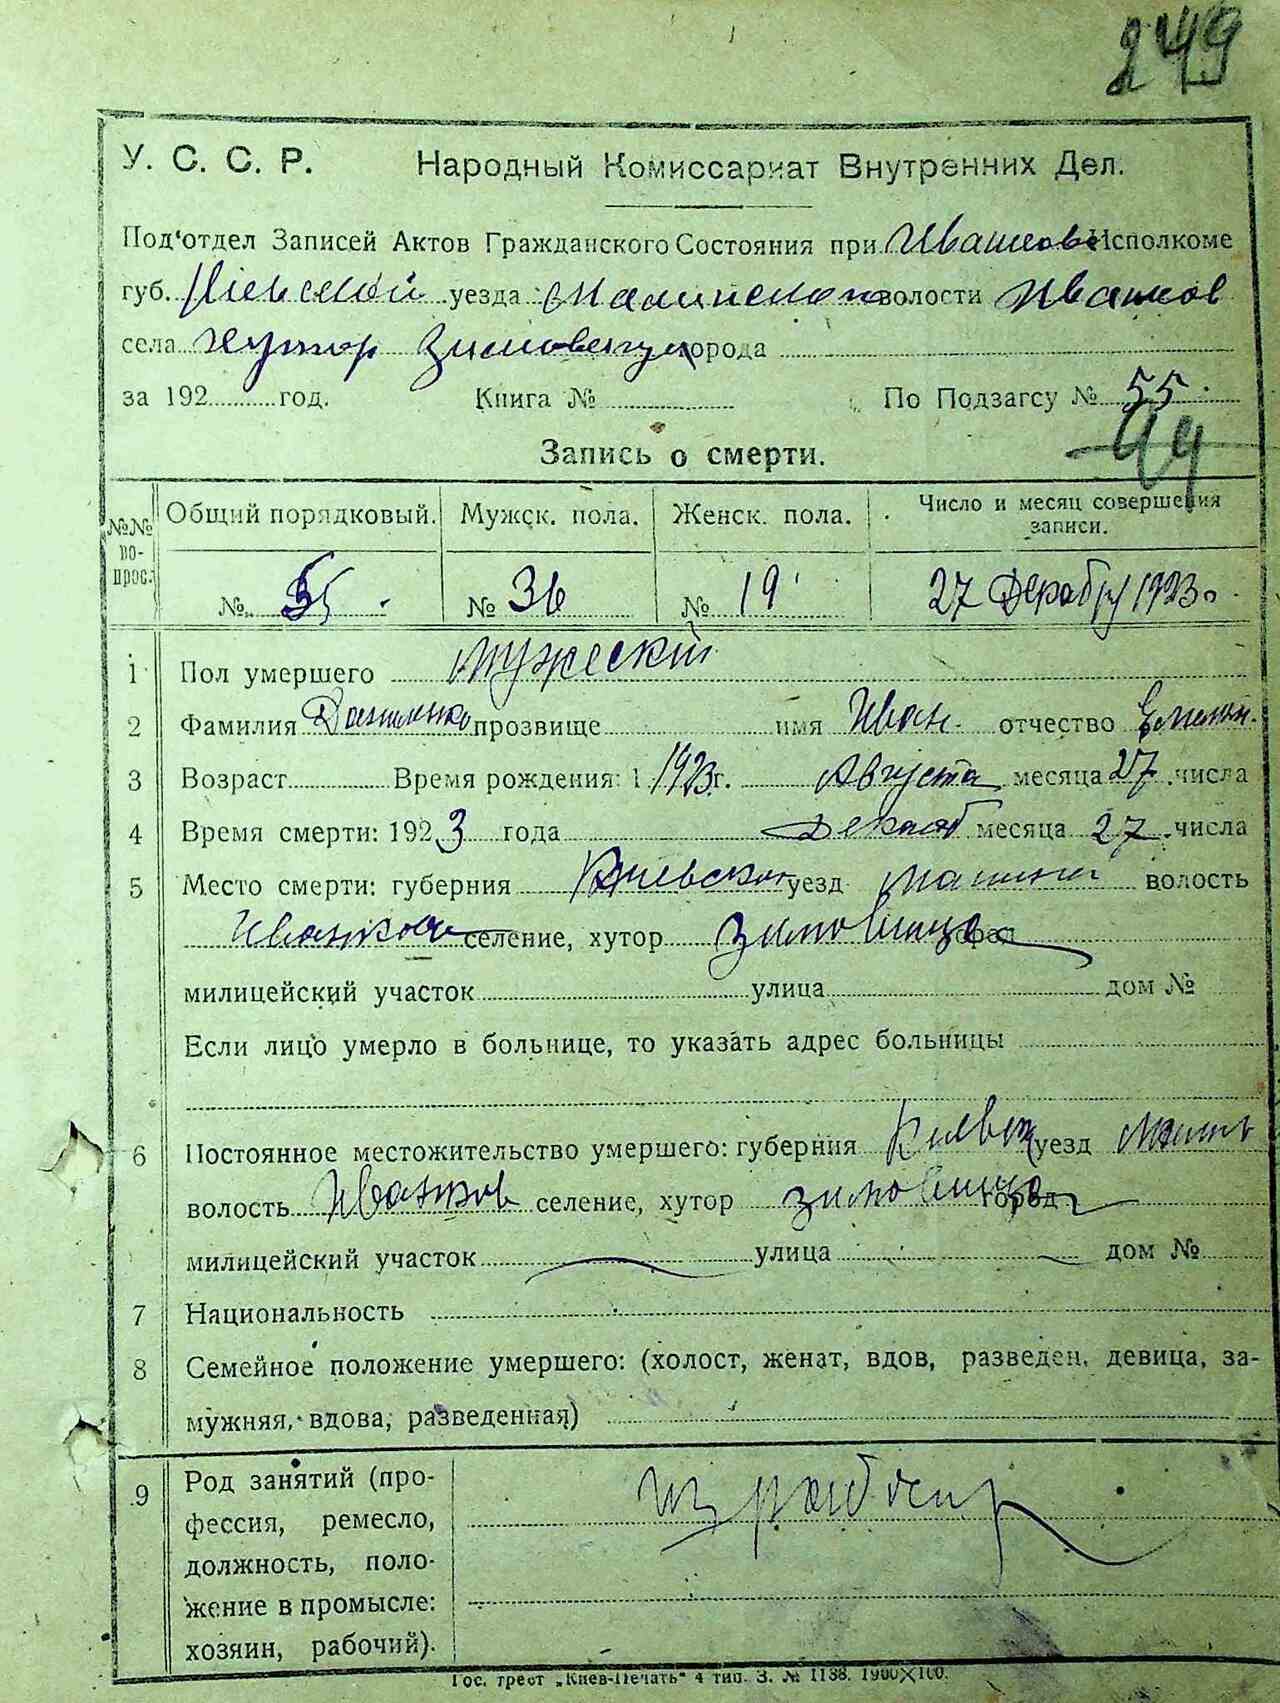 249
У. С. С. Р. Народный Комиссариат Внутренних Дел.
Под'отдел Записей Актов Гражданского Состояния при Исполкоме
губ. Киевской уезда волости Иванков
села хутор города
за 192 год. Книга № По Подзагсу № 55
Запись о смерти.
№№ по-прос. Общий порядковый. Мужск. пола. Женск. пола. Число и месяц совершения записи.
№ 55 № 36 № 19 27 Декабря 1923
1 Пол умершего мужеский
2 Фамилия Даниленко прозвище имя Иван отчество
3 Возраст Время рождения: 1 1923 г. Августа месяца 27 числа
4 Время смерти: 1923 года Декаб месяца 27 числа
5 Место смерти: губерния Киевская уезд волость
селение, хутор Зимовище город
милицейский участок улица дом №
Если лицо умерло в больнице, то указать адрес больницы
6 Постоянное местожительство умершего: губерния уезд
волость Иванков селение, хутор зимовище город
милицейский участок улица дом №
7 Национальность
8 Семейное положение умершего: (холост, женат, вдов, разведен, девица, за-
мужняя, вдова, разведенная)
9 Род занятий (про-
фессия, ремесло,
должность, поло-
жение в промысле:
хозяин, рабочий).
Гос. трест „Киев-Печать" 4 тип. З. № 1138. 1900×100.